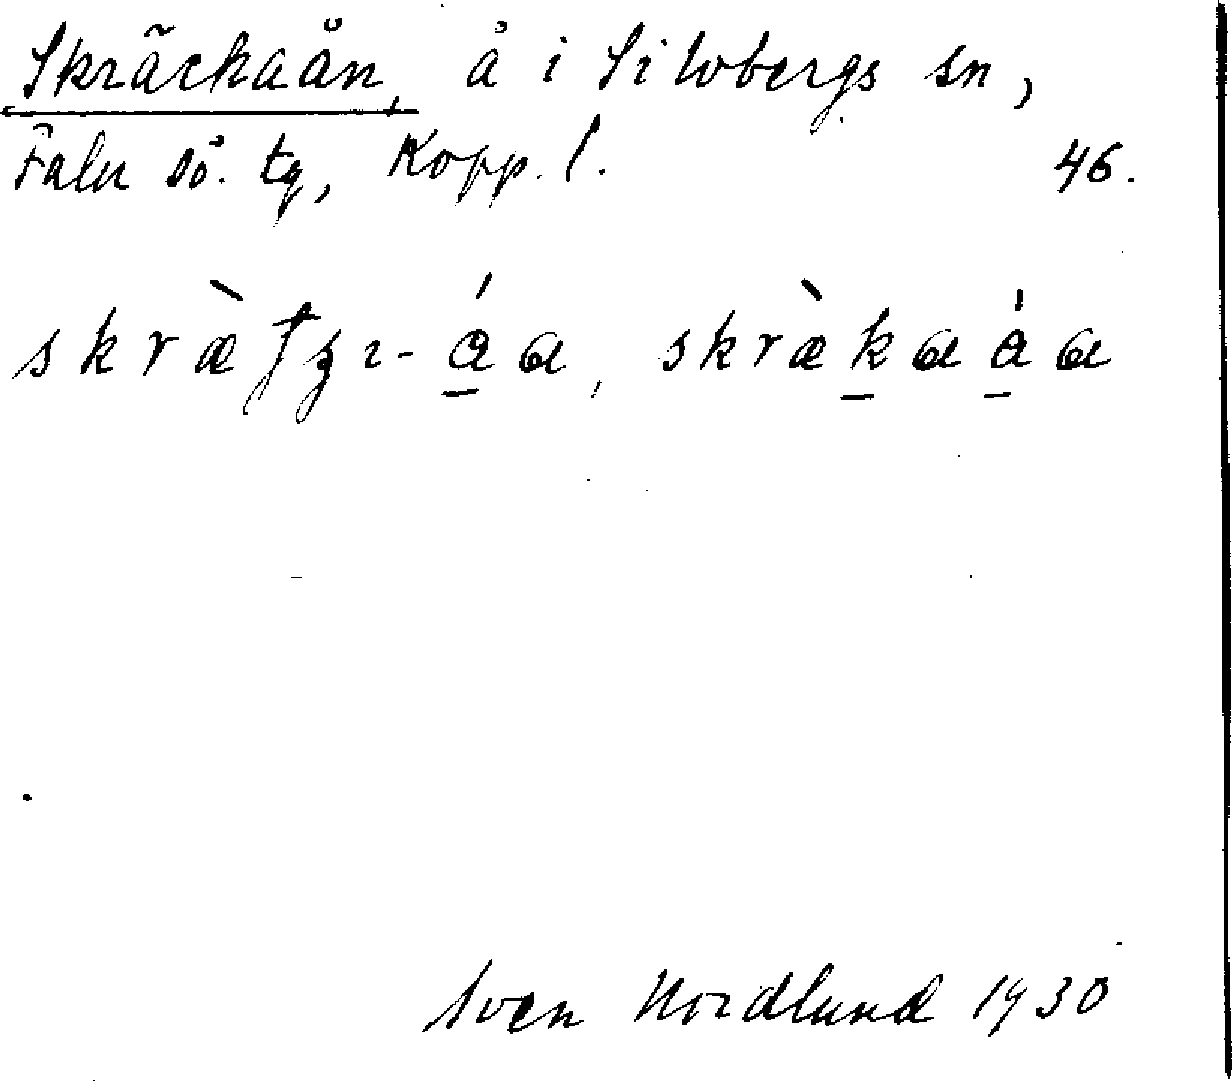 Skräckaån, å i Silvbergs sn,
Falu sö. tg, Kopp. l. 46.
skrækaáa
Sven Nordlund 1930